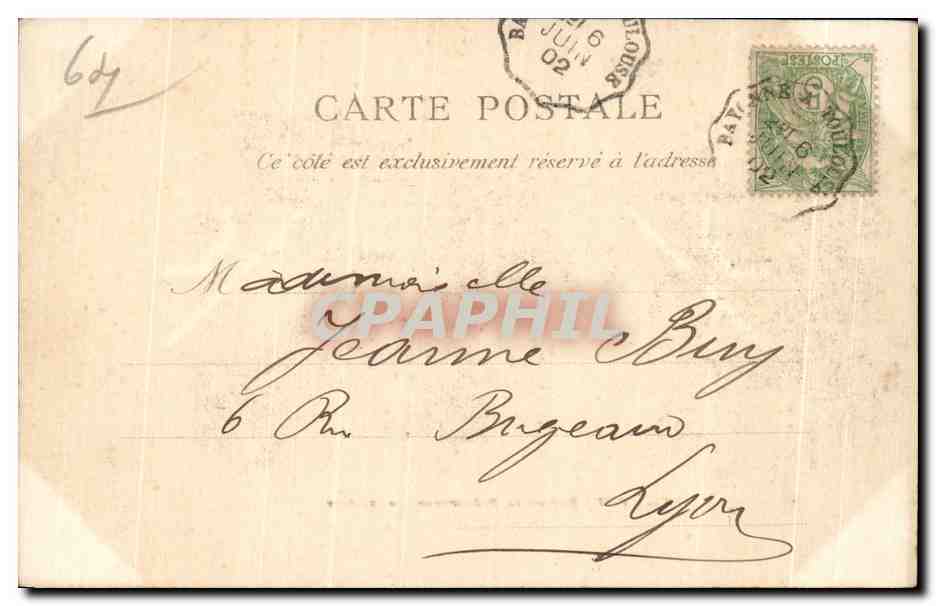 64
BAYONNE A TOULOUSE
6
JUIN
02
BAYONNE A TOULOUSE
6
JUIN
02
5
POSTES
CARTE POSTALE
Ce côté est exclusivement réservé à l'adresse
Mademoiselle
CPAPHIL
Jeanne Buy
6 Rue Bugeaud
Lyon